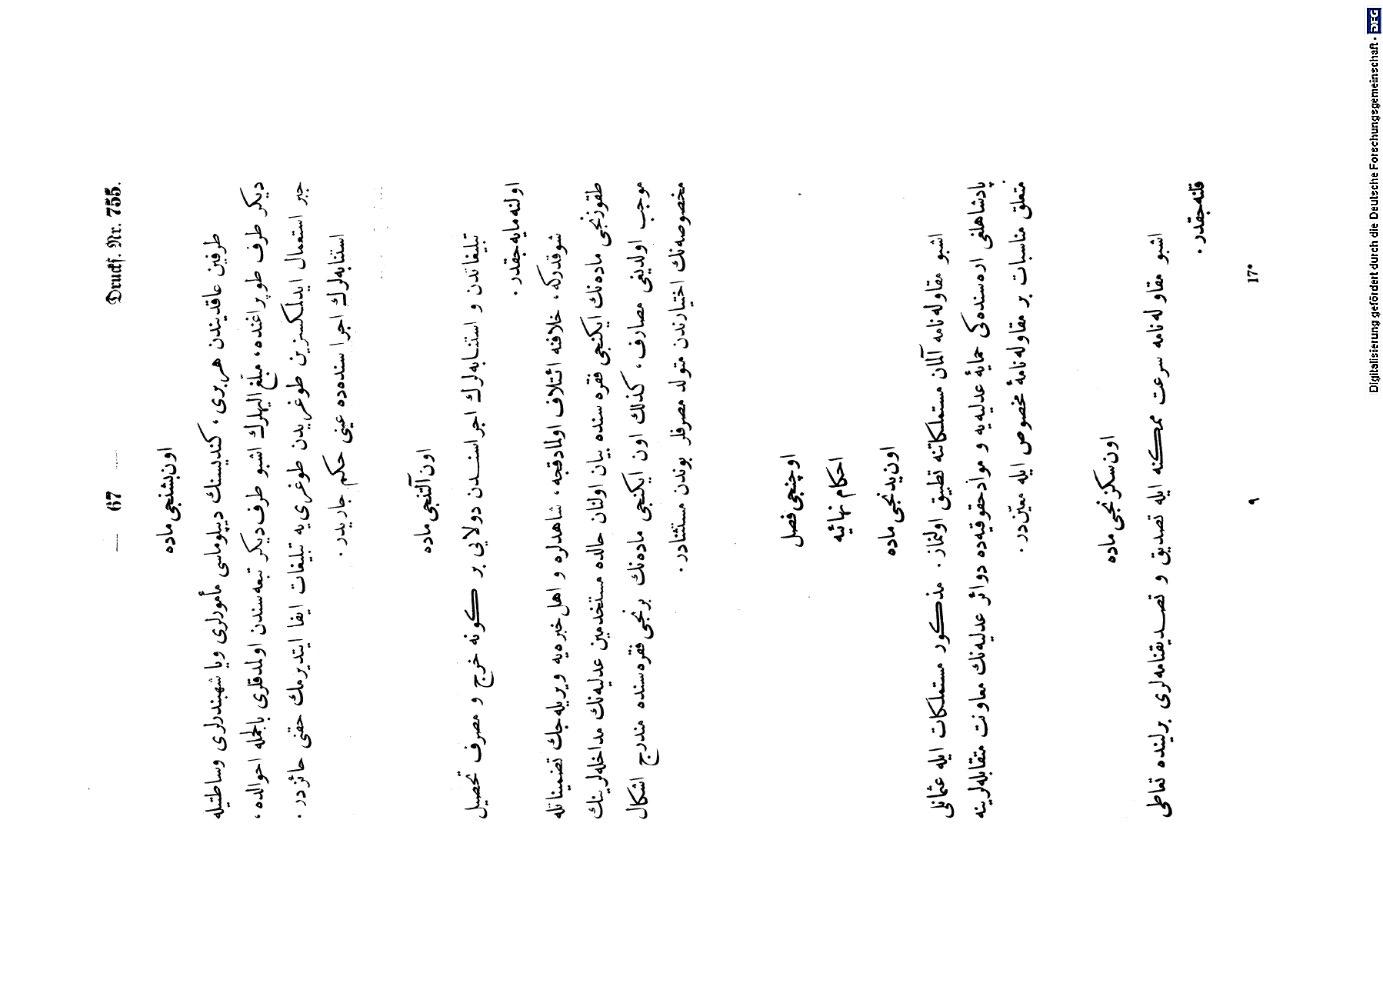 — 67 —
Druckſ. Nr. 755.
اون بشنجی ماده
طرفین عاقدیندن هر بری، كندیسنك دیپلوماسی مأمورلری ویا شهبندرلری وساطتیله
دیكر طرف طوپراغنده، مبلغ الیهلرك اشبو طرف دیكر تبعه‌سندن اولدقلری بالجمله احوالده،
جبر استعمال ایدلمكسزین طوغریدن طوغری‌یه تبلیغات ایفا ایتدیرمك حقنی حائزدر.
استنابه‌لرك اجراسنده‌ده عینی حكم جاریدر.
اون آلتنجی ماده
تبلیغاتدن و استنابه‌لرك اجراسندن دولایی بر كونه خرج و مصرف تحصیل
اولنه‌مایه‌جقدر.
شوقدركه، خلافنه ائتلاف اولمادقجه، شاهدلره و اهل خبره‌یه ویریله‌جك تضمیناتله
طقوزنجی ماده‌نك ایكنجی فقره‌سنده بیان اولنان حالده مستخدمین عدلیه‌نك مداخله‌لرینك
موجب اولدیغی مصارف، كذلك اون ایكنجی ماده‌نك برنجی فقره‌سنده مندرج اشكال
مخصوصه‌نك اختیارندن متولد مصرفلر بوندن مستثنادر.
اوچنجی فصل
احكام نهائیه
اون یدنجی ماده
اشبو مقاوله‌نامه آلمان مستملكاتنه تطبیق اولنماز. مذكور مستملكات ایله عثمانلی
پادشاهلغی اره‌سنده‌كی حمایهٔ عدلیه‌یه و مواد حقوقیه‌ده دوائر عدلیه‌نك معاونت متقابله‌لرینه
متعلق مناسبات بر مقاوله‌نامهٔ مخصوص ایله معیندر.
اون سكزنجی ماده
اشبو مقاوله‌نامه سرعت ممكنه ایله تصدیق و تصدیقنامه‌لری برلینده تعاطی
قلنه‌جقدر.
٩
17*
Digitalisierung gefördert durch die Deutsche Forschungsgemeinschaft - DFG